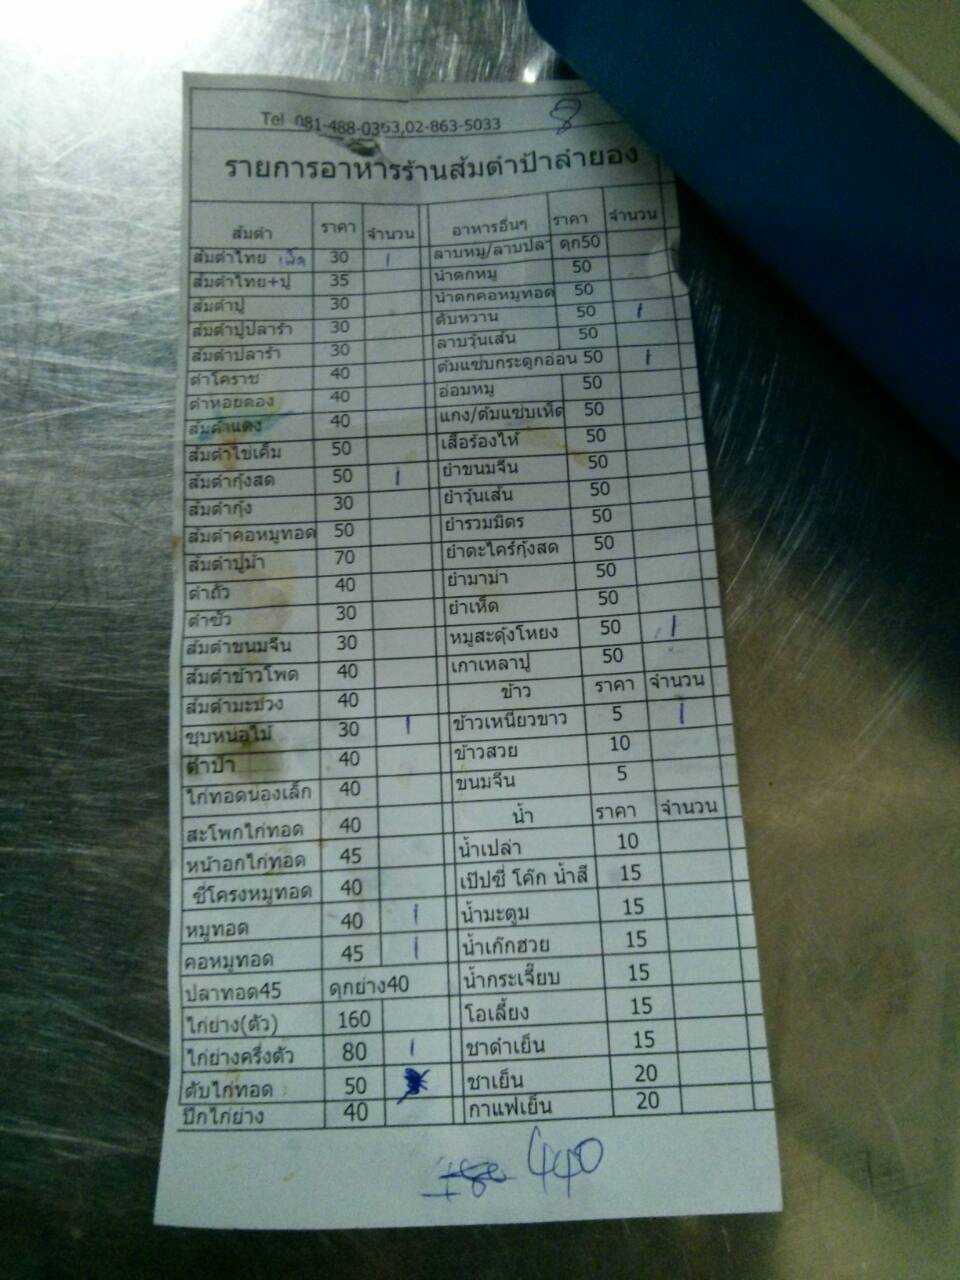 Tel 081-488-0363,02-863-5033 8
รายการอาหารร้านส้มตำป้าลำยอง
ส้มตำ ราคา จำนวน อาหารอื่นๆ ราคา จำนวน
ส้มตำไทย เผ็ด 30 1 ลาบหมู/ลาบปลา ดุก50
ส้มตำไทย+ปู 35 น้ำตกหมู 50
ส้มตำปู 30 น้ำตกคอหมูทอด 50
ส้มตำปูปลาร้า 30 ตับหวาน 50 1
ส้มตำปลาร้า 30 ลาบวุ้นเส้น 50
ตำโคราช 40 ต้มแซ่บกระดูกอ่อน 50 1
ตำหอยดอง 40 อ่อมหมู 50
ส้มตำแตง 40 แกง/ต้มแซ่บเห็ด 50
ส้มตำไข่เค็ม 50 เสือร้องไห้ 50
ส้มตำกุ้งสด 50 1 ยำขนมจีน 50
ส้มตำกุ้ง 30 ยำวุ้นเส้น 50
ส้มตำคอหมูทอด 50 ยำรวมมิตร 50
ส้มตำปูม้า 70 ยำตะไคร้กุ้งสด 50
ตำถั่ว 40 ยำมาม่า 50
ตำซั่ว 30 ยำเห็ด 50
ส้มตำขนมจีน 30 หมูสะดุ้งโหยง 50 1
ส้มตำข้าวโพด 40 เกาเหลาปู 50
ส้มตำมะม่วง 40 ข้าว ราคา จำนวน
ซุบหน่อไม้ 30 1 ข้าวเหนียวขาว 5 1
ตำป่า 40 ข้าวสวย 10
ไก่ทอดน่องเล็ก 40 ขนมจีน 5
สะโพกไก่ทอด 40 น้ำ ราคา จำนวน
หน้าอกไก่ทอด 45 น้ำเปล่า 10
ซี่โครงหมูทอด 40 เป๊ปซี่ โค๊ก น้ำสี 15
หมูทอด 40 1 น้ำมะตูม 15
คอหมูทอด 45 1 น้ำเก๊กฮวย 15
ปลาทอด45 ดุกย่าง40 น้ำกระเจี๊ยบ 15
ไก่ย่าง(ตัว) 160 โอเลี้ยง 15
ไก่ย่างครึ่งตัว 80 1 ชาดำเย็น 15
ตับไก่ทอด 50 ชาเย็น 20
ปีกไก่ย่าง 40 กาแฟเย็น 20
440